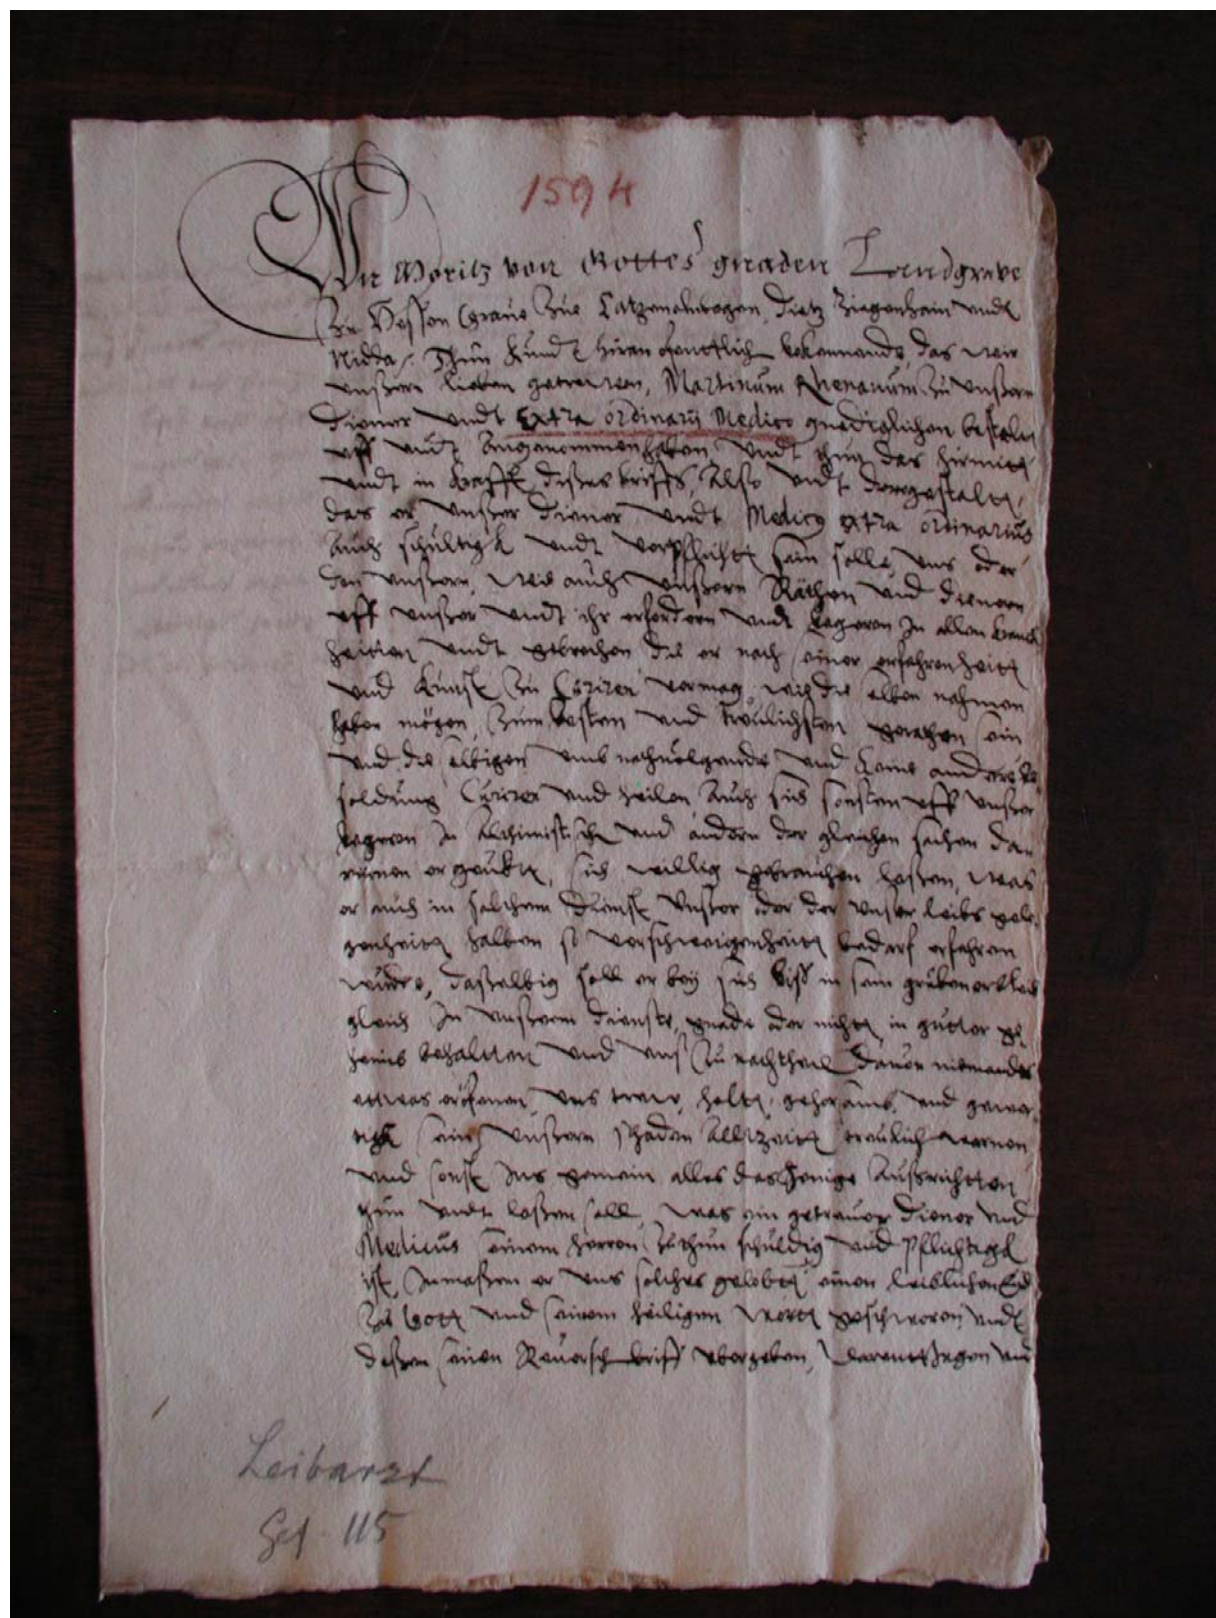 1594
Wir Moritz von Gottes gnaden Landgrave
Zu Hessen Grave Zue Catzenelnbogen, Dietz Ziegenhain undt
Nidda, Thun kundt hiran öfentlich bekennende, das wir
unßern lieben getrewen, Martinum Rhenanum Zu unßern
Diener undt Extra ordinarij Medico gnediglichen bestelu
uff undt Angenommen haben undt thun das hirmitt
undt in krafft dißes briffs, Also undt dergestaltt,
das er unßer Diener undt Medicus extra ordinarius
Auch schultigk undt verpflichtt sein solle, uns oder
den unßern, wie auch unßern Räthen und dienern
uff unßer undt ihr erfordern undt begeren In allen kranck
heitten undt gebrechen die er nach seiner erfahrenheitt
und kunst Zu Curiren vermag, wie die selben nahmen
haben mögen, Zum besten und treulichsten gerathen sein
und die selbigen umb nachvolgende und keine andere be
soldung Curiren und heilen, Auch sich sonsten uff unßer
begeren In Alchimistische und andern der gleichen sachen dar
innen er geubtt, sich willig gebrauchen laßen, was
er auch in solchem Dienst unßer oder der unßer leibs gele
genheitt halben so verschweigenheitt bedarf erfahren
wurde, daßelbig soll er bey sich biß in sein gruben er bleib
gleich In unßerm dienste, gnade oder nichtt, in gutter ge
heim behaltten und uns Zu nachtheil davon niemandts
ettwas eröfenen, uns trew, holtt, gehorsamb, und gewer
tigk sein, unßern schaden Allezeitt treulich warnen
und sonst Ins gemein alles dasjenige Außrichtten
thun undt laßen soll, was ein getrauer Diener und
Medicus seinem herren Zuthun schuldig und pflichtigk
ist, Inmaßen er uns solches gelobtt einen leiblichen Eid
Zu Gott und seinem heiligen wortt geschworen, undt
deßen seinen Reversch briff ubergeben, Darentjegen wir
Leibarzt
Gef. 115